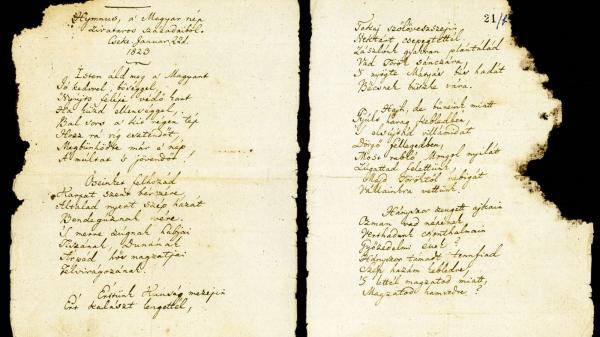 Hymnus, a' Magyar nép
zivataros századaiból.
Cseke, Januar. 22d.
1823
Isten áld meg a' Magyart
Jó kedvvel, bőséggel,
Nyújts feléje védő kart
Ha küzd ellenséggel;
Bal sors a' kit régen tép
Hozz rá víg esztendőt,
Megbűnhődte már e' nép
A' multat 's jövendőt!
Őseinket felhozád
Kárpát szent bérczére,
Általad nyert szép hazát
Bendegúznak vére.
'S merre zúgnak habjai
Tiszának, Dunának
Árpád hős magzatjai
Felvirágozának.
Értünk Kunság mezejin
Ért kalászt lengettél,
21/
Tokaj szőlővesszejin
Nektárt csepegtettél.
Zászlónk gyakran plántálád
Vad Török sánczára,
'S nyögte Mátyás' bús hadát
Bécsnek büszke vára.
Hajh, de bűneink miatt
Gyúlt harag kebledben,
'S elsújtád villámidat
Dörgő fellegedben,
Most rabló Mongol nyilát
Zúgattad felettünk,
Majd Töröktől rabigát
Vállainkra vettünk.
Hányszor zengett ajkain
Ozman vad népének
Vert hadunk csonthalmain
Győzedelmi ének?
Hányszor támadt tenfiad
Szép hazám kebledre,
'S lettél magzatod miatt,
Magzatod hamvedre?